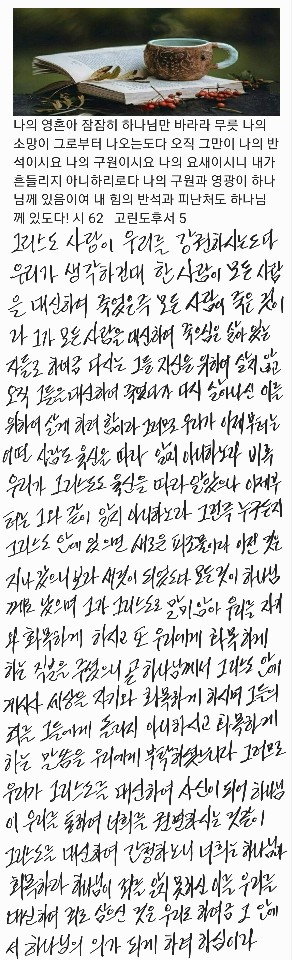 나의 영혼아 잠잠히 하나님만 바라라 무릇 나의
소망이 그로부터 나오는도다 오직 그만이 나의 반
석이시요 나의 구원이시요 나의 요새이시니 내가
흔들리지 아니하리로다 나의 구원과 영광이 하나
님께 있음이여 내 힘의 반석과 피난처도 하나님
께 있도다! 시 62 고린도후서 5
그리스도 사랑이 우리를 강권하시는도다
우리가 생각하건대 한 사람이 모든 사람
을 대신하여 죽었은즉 모든 사람이 죽은 것이
라 그가 모든 사람을 대신하여 죽으심은 살아 있는
자들로 하여금 다시는 그들 자신을 위하여 살지 않고
오직 그들을 대신하여 죽었다가 다시 살아나신 이를
위하여 살게 하려 함이라 그러므로 우리가 이제부터는
어떤 사람도 육신을 따라 알지 아니하노라 비록
우리가 그리스도도 육신을 따라 알았으나 이제부
터는 그와 같이 알지 아니하노라 그런즉 누구든지
그리스도 안에 있으면 새로운 피조물이라 이전 것은
지나갔으니 보라 새것이 되었도다 모든 것이 하나님
께로 났으며 그가 그리스도로 말미암아 우리를 자기
와 화목하게 하시고 또 우리에게 화목하게
하는 직분을 주셨으니 곧 하나님께서 그리스도 안에
계시사 세상을 자기와 화목하게 하시며 그들의
죄를 그들에게 돌리지 아니하시고 화목하게
하는 말씀을 우리에게 부탁하셨느니라 그러므로
우리가 그리스도를 대신하여 사신이 되어 하나님
이 우리를 통하여 너희를 권면하시는 것같이
그리스도를 대신하여 간청하노니 너희는 하나님과
화목하라 하나님이 죄를 알지 못하신 이를 우리를
대신하여 죄로 삼으신 것은 우리로 하여금 그 안에
서 하나님의 의가 되게 하려 하심이라